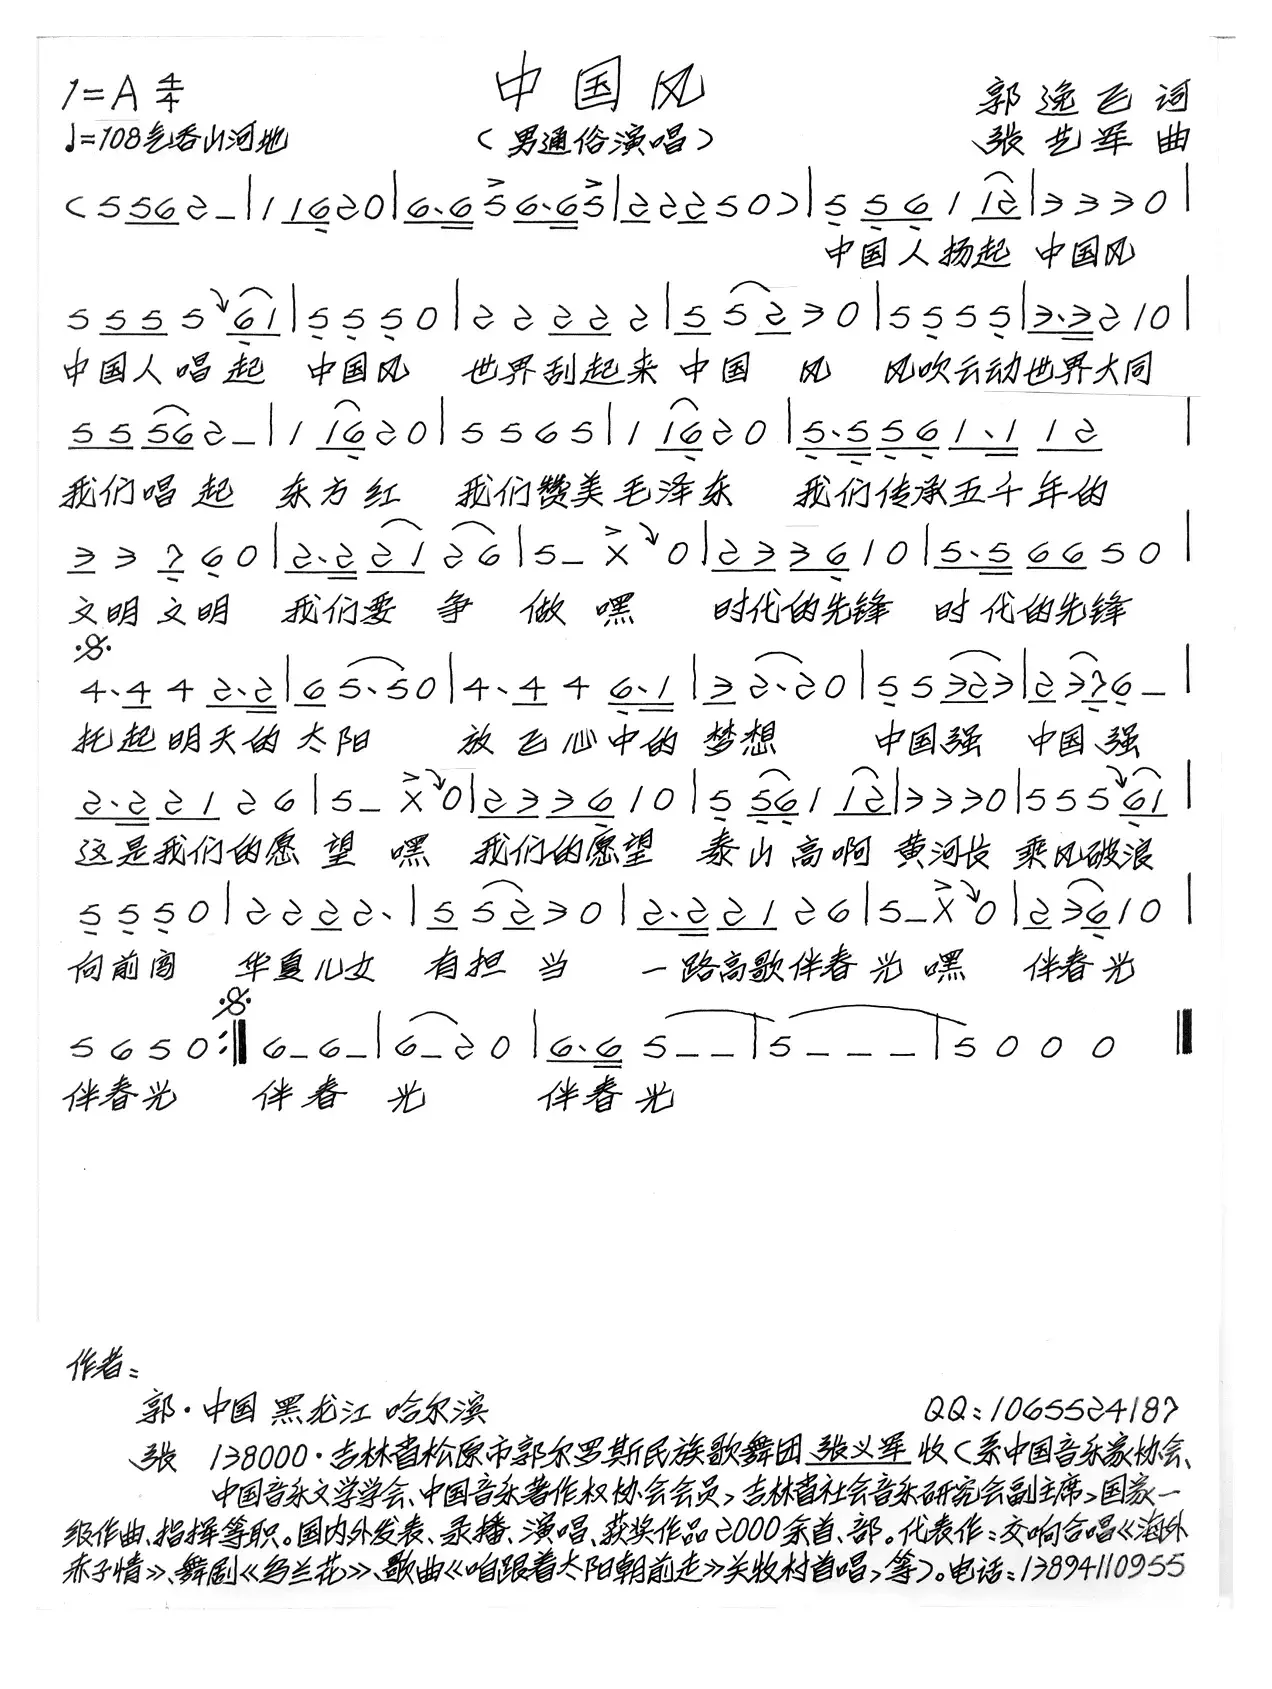 1=A 4/4
中国风
郭逸飞 词
♩=108 气吞山河地
（男通俗演唱）
张艺军 曲
(5 5 6 2 – | 1 1 6 2 0 | 6·6 5 6·6 5 | 2 2 2 5 0) | 5 5 6 1 1 2 | 3 3 3 0 |
中国人扬起 中国风
5 5 5 5 6 1 | 5 5 5 0 | 2 2 2 2 2 | 5 5 2 3 0 | 5 5 5 5 | 3·3 2 1 0 |
中国人唱起 中国风 世界刮起来 中国风 风吹云动世界大同
5 5 5 6 2 – | 1 1 6 2 0 | 5 5 6 5 | 1 1 6 2 0 | 5·5 5 6 1·1 1 2 |
我们唱起 东方红 我们赞美毛泽东 我们传承五千年的
3 3 7 6 0 | 2·2 2 1 2 6 | 5 – X 0 | 2 3 3 6 1 0 | 5·5 6 6 5 0 |
文明文明 我们要争做嘿 时代的先锋 时代的先锋
4·4 4 2·2 | 6 5·5 0 | 4·4 4 6·1 | 3 2·2 0 | 5 5 3 2 3 | 2 3 7 6 – |
托起明天的太阳 放飞心中的梦想 中国强 中国强
2·2 2 1 2 6 | 5 – X 0 | 2 3 3 6 1 0 | 5 5 6 1 1 2 | 3 3 3 0 | 5 5 5 6 1 |
这是我们的愿望嘿 我们的愿望 泰山高啊 黄河长 乘风破浪
5 5 5 0 | 2 2 2 2· | 5 5 2 3 0 | 2·2 2 1 2 6 | 5 – X 0 | 2 3 6 1 0 |
向前闯 华夏儿女 有担当 一路高歌伴春光嘿 伴春光
5 6 5 0 :‖ 6 – 6 – | 6 – 2 0 | 6·6 5 – – | 5 – – – | 5 0 0 0 ‖
伴春光 伴春光 伴春光
作者：
郭·中国 黑龙江 哈尔滨 QQ：1065524187
张 138000·吉林省松原市郭尔罗斯民族歌舞团 张义军 收（系中国音乐家协会、
中国音乐文学学会、中国音乐著作权协会会员，吉林省社会音乐研究会副主席，国家一
级作曲、指挥等职。国内外发表、录播、演唱、获奖作品2000余首、部。代表作：交响合唱《海外
赤子情》、舞剧《乌兰花》、歌曲《咱跟着太阳朝前走》关牧村首唱，等）。电话：13894110955